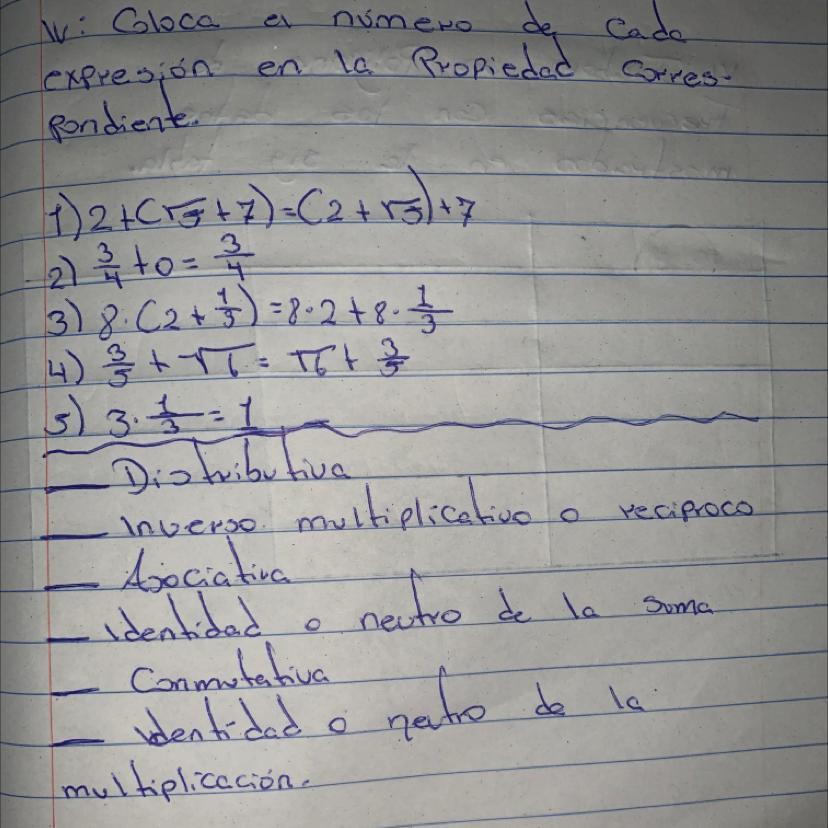 IV: Coloca el número de cada
expresión en la Propiedad corres-
pondiente.
1) 2+(√5+7)=(2+√5)+7
2) 3/4+0=3/4
3) 8·(2+1/3)=8·2+8·1/3
4) 3/5+√6=√6+3/5
5) 3·1/3=1
__ Distributiva
__ Inverso multiplicativo o reciproco
__ Asociativa
__ Identidad o neutro de la suma
__ Conmutativa
__ Identidad o neutro de la
multiplicación.